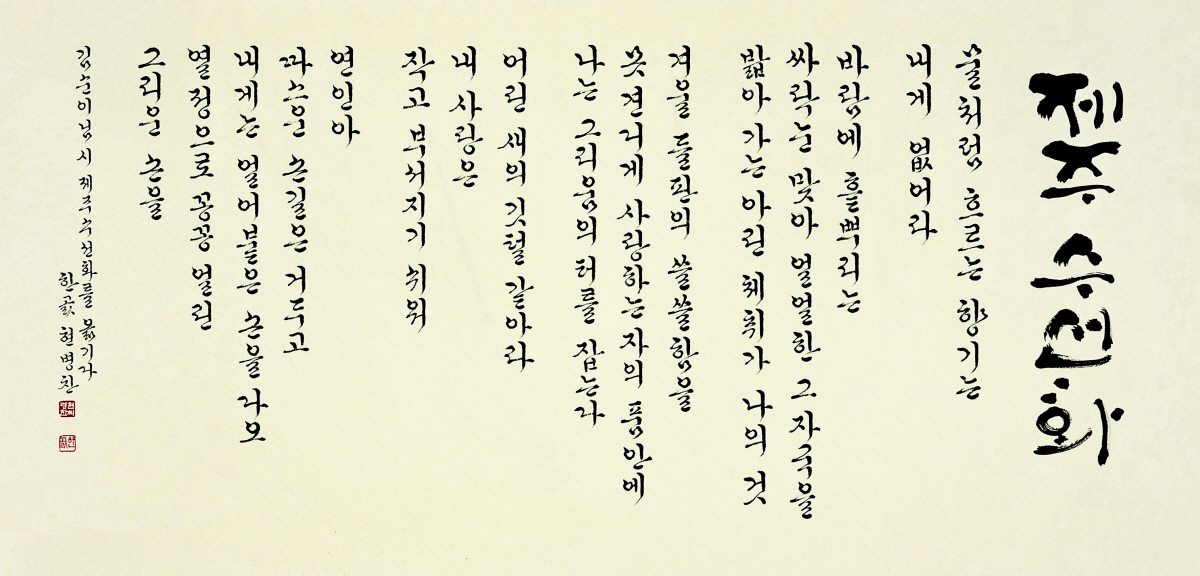 제주 수선화
물처럼 흐르는 향기는
내게 없어라
바람에 흩뿌리는
싸락눈 맞아 얼얼한 그 자국을
밟아 가는 아린 체취가 나의 것
겨울 들판의 쓸쓸함을
못 견디게 사랑하는 자의 품안에
나는 그리움의 터를 잡는다
어린 새의 깃털 같아라
내 사랑은
작고 부서지기 쉬워
연인아
따슨 손길은 거두고
내게는 얼어붙은 손을 다오
열정으로 꽁꽁 얼린
그리운 손을
김순이님 시 제주수선화를 옮기다
한곬 현병찬